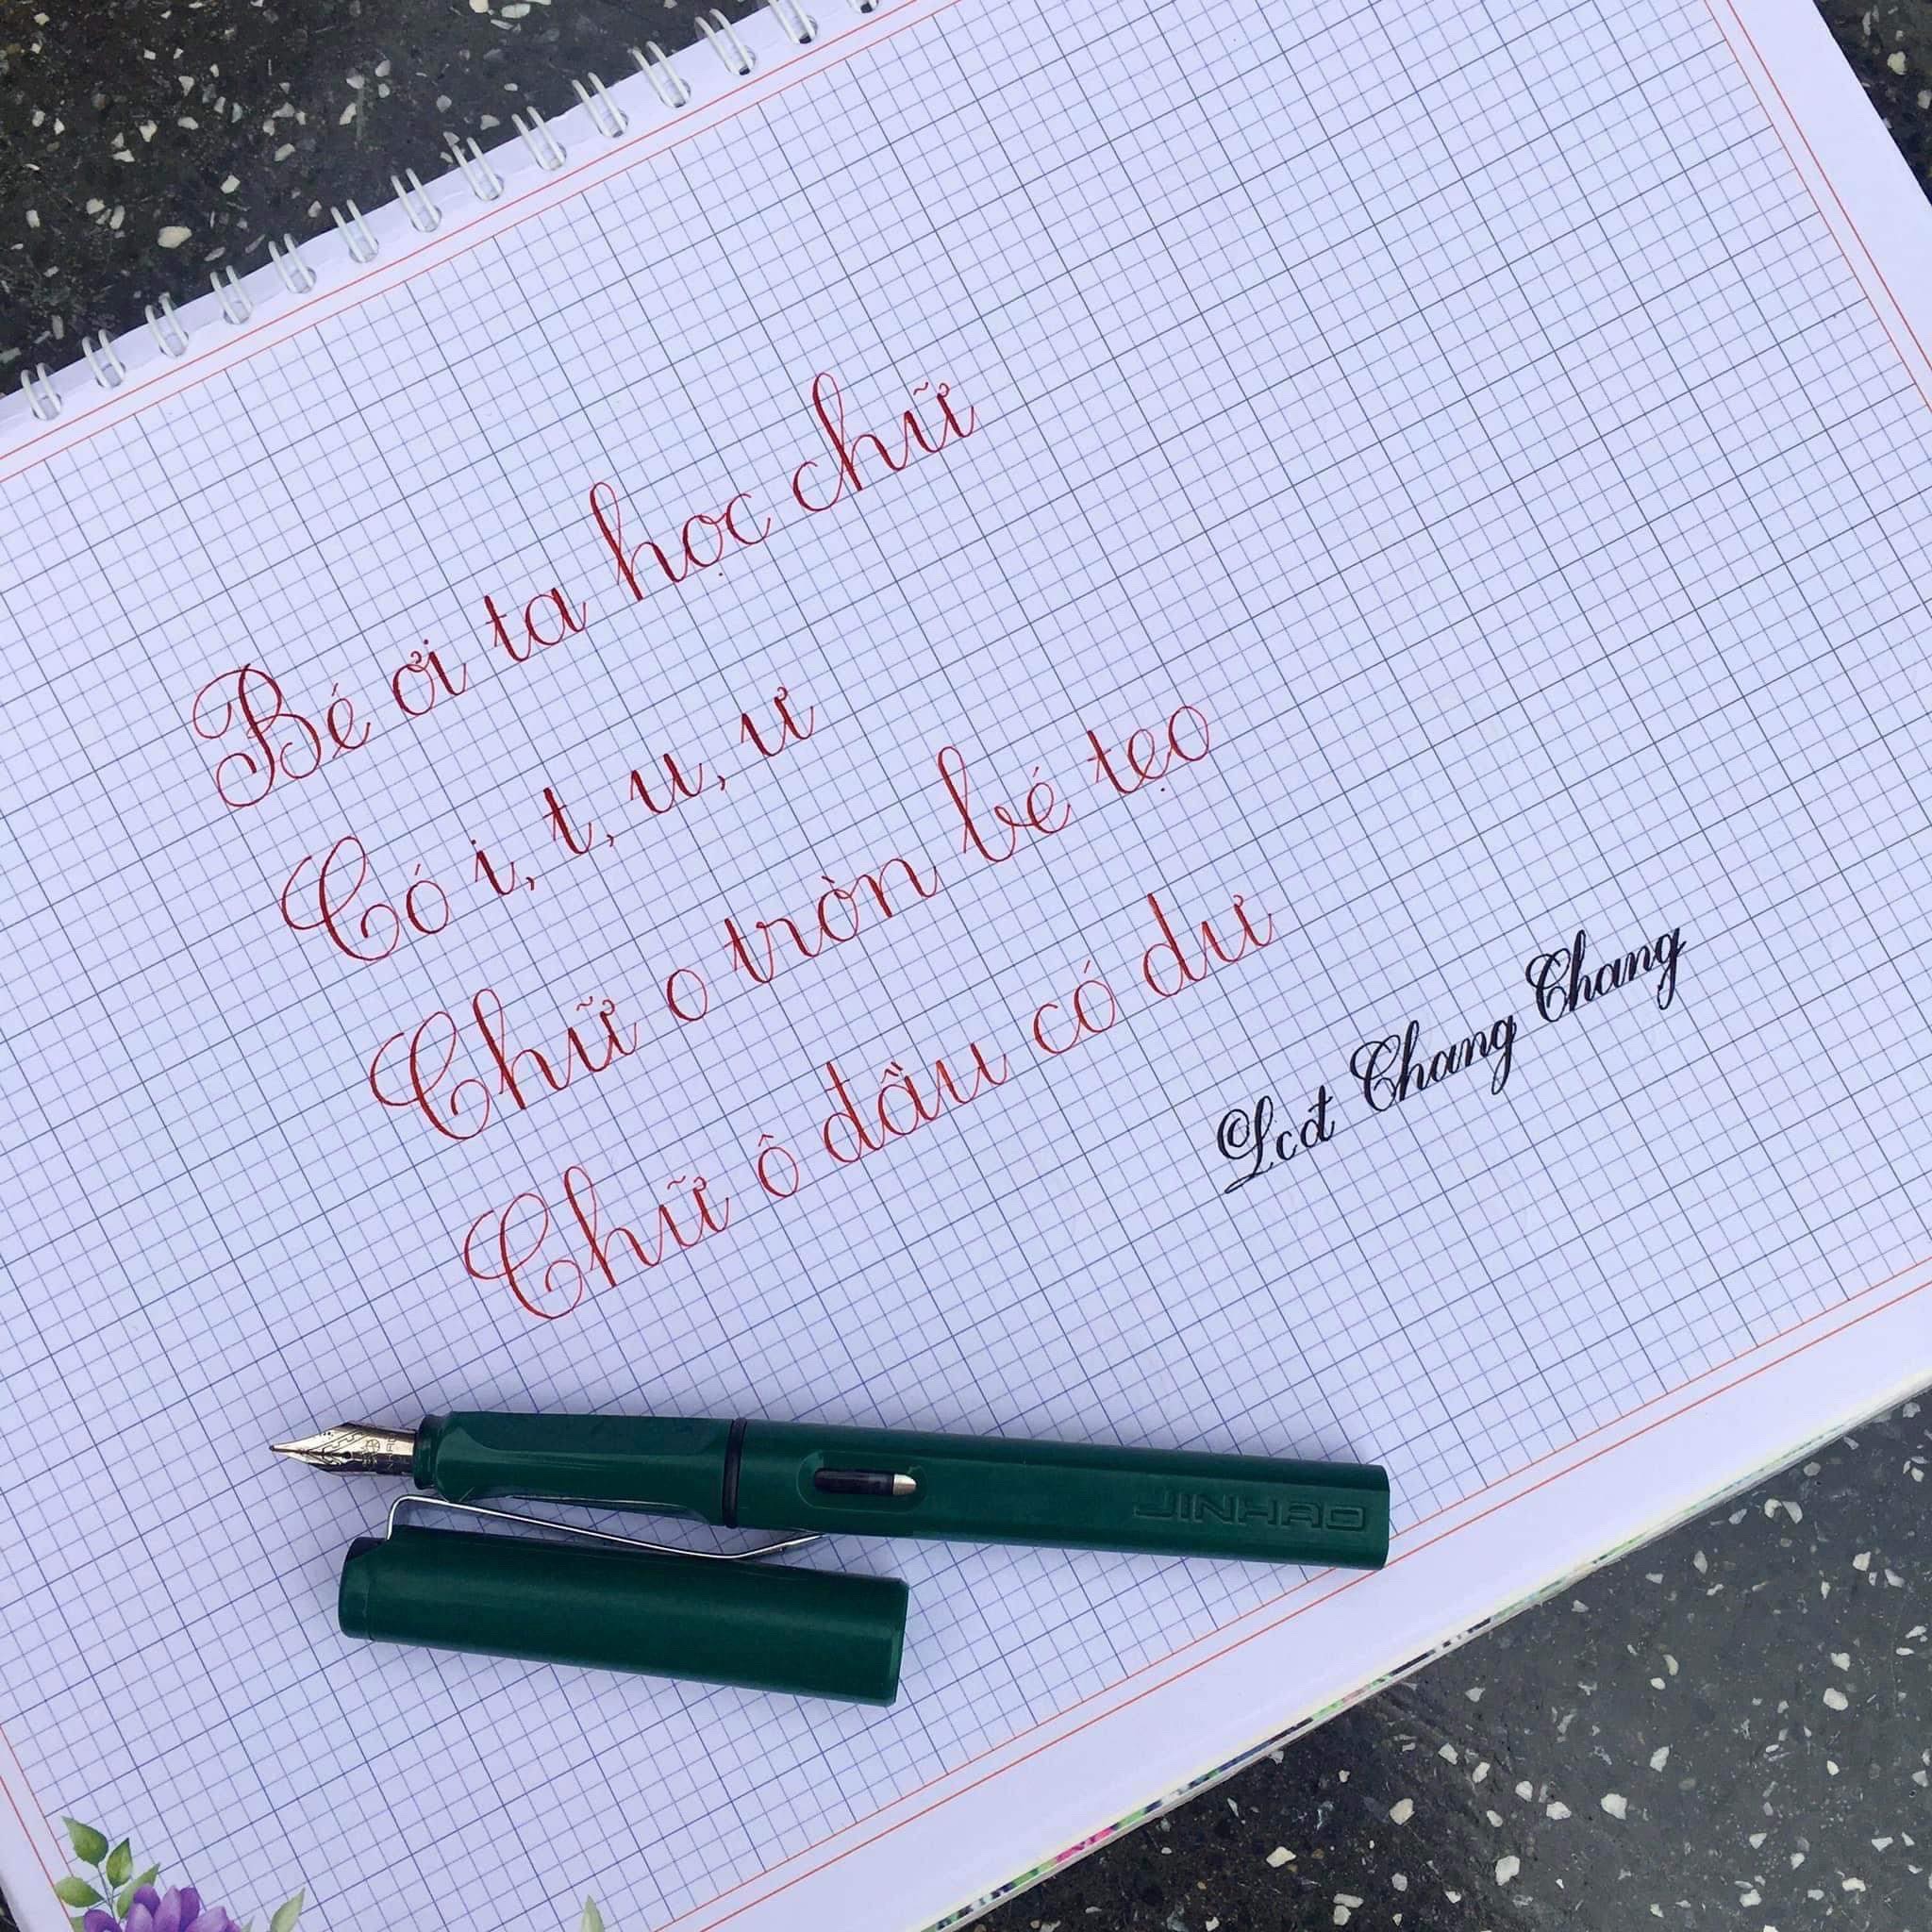 Bé ơi ta học chữ
Có i, t, u, ư
Chữ o tròn bé tẹo
Chữ ô đầu có dư
Lcđt Chang Chang
JINHAO